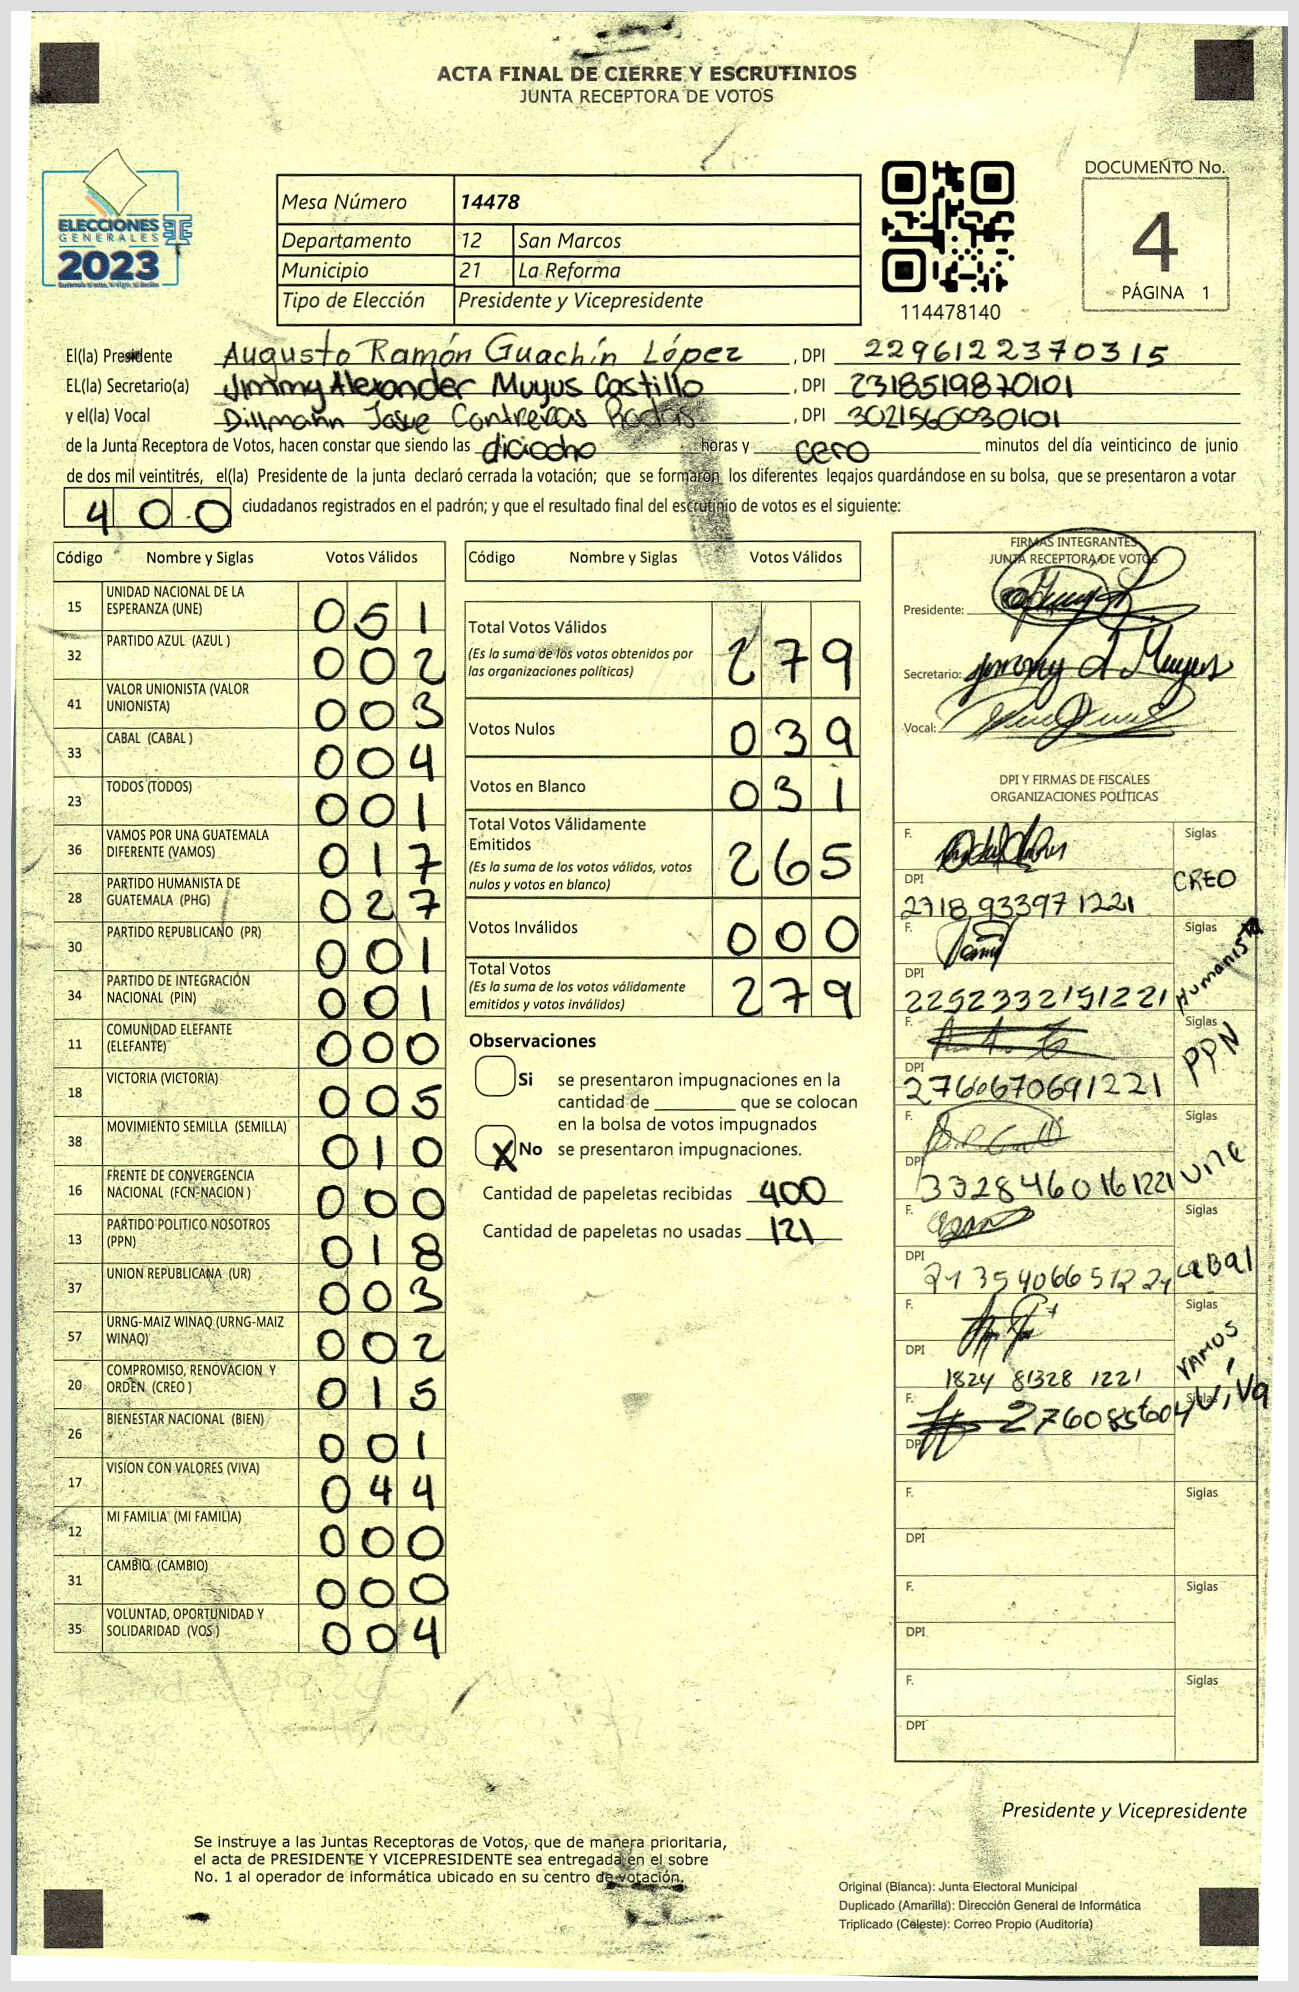 ACTA FINAL DE CIERRE Y ESCRUTINIOS
JUNTA RECEPTORA DE VOTOS
ELECCIONES
GENERALES
2023
Mesa Número 14478
Departamento 12 San Marcos
Municipio 21 La Reforma
Tipo de Elección Presidente y Vicepresidente
114478140
DOCUMENTO No.
4
PÁGINA 1
El(la) Presidente Augusto Ramón Guachín López , DPI 2296122370315
EL(la) Secretario(a) Jimmy Alexander Muyus Castillo , DPI 2318519870101
y el(la) Vocal Dillmann Josue Contreras Rodas , DPI 3021560030101
de la Junta Receptora de Votos, hacen constar que siendo las diciocho horas y cero minutos del día veinticinco de junio
de dos mil veintitrés, el(la) Presidente de la junta declaró cerrada la votación; que se formaron los diferentes legajos guardándose en su bolsa, que se presentaron a votar
400 ciudadanos registrados en el padrón; y que el resultado final del escrutinio de votos es el siguiente:
Código Nombre y Siglas Votos Válidos
15 UNIDAD NACIONAL DE LA ESPERANZA (UNE) 051
32 PARTIDO AZUL (AZUL ) 002
41 VALOR UNIONISTA (VALOR UNIONISTA) 003
33 CABAL (CABAL ) 004
23 TODOS (TODOS) 001
36 VAMOS POR UNA GUATEMALA DIFERENTE (VAMOS) 017
28 PARTIDO HUMANISTA DE GUATEMALA (PHG) 027
30 PARTIDO REPUBLICANO (PR) 001
34 PARTIDO DE INTEGRACIÓN NACIONAL (PIN) 001
11 COMUNIDAD ELEFANTE (ELEFANTE) 000
18 VICTORIA (VICTORIA) 005
38 MOVIMIENTO SEMILLA (SEMILLA) 010
16 FRENTE DE CONVERGENCIA NACIONAL (FCN-NACION ) 000
13 PARTIDO POLITICO NOSOTROS (PPN) 018
37 UNION REPUBLICANA (UR) 003
57 URNG-MAIZ WINAQ (URNG-MAIZ WINAQ) 002
20 COMPROMISO, RENOVACION Y ORDEN (CREO ) 015
26 BIENESTAR NACIONAL (BIEN) 001
17 VISION CON VALORES (VIVA) 044
12 MI FAMILIA (MI FAMILIA) 000
31 CAMBIO (CAMBIO) 000
35 VOLUNTAD, OPORTUNIDAD Y SOLIDARIDAD (VOS ) 004
Código Nombre y Siglas Votos Válidos
Total Votos Válidos 279
(Es la suma de los votos obtenidos por
las organizaciones políticas)
Votos Nulos 039
Votos en Blanco 031
Total Votos Válidamente
Emitidos 265
(Es la suma de los votos válidos, votos
nulos y votos en blanco)
Votos Inválidos 000
Total Votos 279
(Es la suma de los votos válidamente
emitidos y votos inválidos)
Observaciones
Si se presentaron impugnaciones en la
cantidad de ________ que se colocan
en la bolsa de votos impugnados
X No se presentaron impugnaciones.
Cantidad de papeletas recibidas 400
Cantidad de papeletas no usadas 121
FIRMAS INTEGRANTES
JUNTA RECEPTORA DE VOTOS
Presidente:
Secretario: Jimmy A Muyus
Vocal:
DPI Y FIRMAS DE FISCALES
ORGANIZACIONES POLÍTICAS
F. Siglas
DPI CREO
2718 93397 1221
F. Siglas
DPI Humanista
2252332151221
F. Siglas
DPI PPN
2766670691221
F. Siglas
DPI une
3328460161221
F. Siglas
DPI caBal
F. Siglas
DPI VAMOS
1824 81328 1221
F. 276085604 Siglas Viva
DPI
F. Siglas
DPI
F. Siglas
DPI
F. Siglas
DPI
Presidente y Vicepresidente
Se instruye a las Juntas Receptoras de Votos, que de manera prioritaria,
el acta de PRESIDENTE Y VICEPRESIDENTE sea entregada en el sobre
No. 1 al operador de informática ubicado en su centro de votación.
Original (Blanca): Junta Electoral Municipal
Duplicado (Amarilla): Dirección General de Informática
Triplicado (Celeste): Correo Propio (Auditoría)